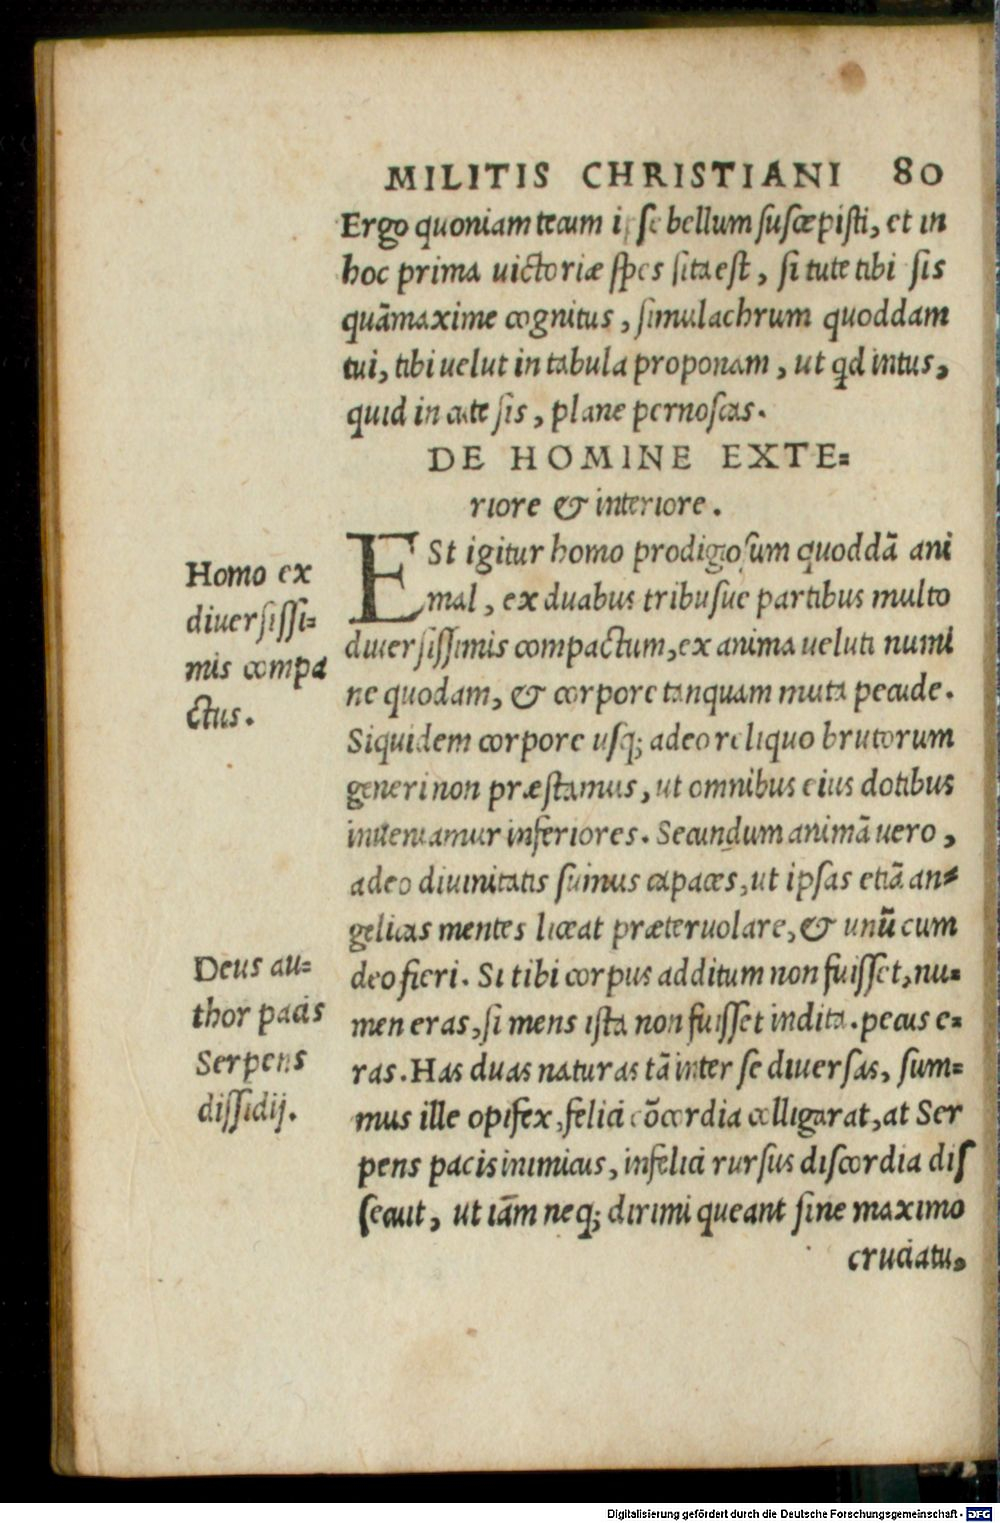 MILITIS CHRISTIANI 80
Ergo quoniam tecum ipse bellum suscepisti, et in
hoc prima uictoriæ spes sita est, si tute tibi sis
quāmaxime cognitus, simulachrum quoddam
tui, tibi uelut in tabula proponam, ut qd intus,
quid in cute sis, plane pernoscas.
DE HOMINE EXTE=
riore & interiore.
ESt igitur homo prodigosum quoddā ani
mal, ex duabus tribusue partibus multo
diuersissimis compactum, ex anima ueluti numi
ne quodam, & corpore tanquam muta pecude.
Siquidem corpore usq; adeo reliquo brutorum
generi non præstamus, ut omnibus eius dotibus
inueniamur inferiores. Secundum animā uero,
adeo diuinitatis sumus capaces, ut ipsas etiā an=
gelicas mentes liceat præteruolare, & unū cum
deo fieri. Si tibi corpus additum non fuisset, nu=
men eras, si mens ista non fuisset indita. pecus e=
ras. Has duas naturas tā inter se diuersas, sum=
mus ille opifex, felici cōcordia colligarat, at Ser
pens pacis inimicus, infelici rursus discordia dis
secuit, ut iām neq; dirimi queant sine maximo
cruciatu,
Homo ex
diuersissi=
mis compa
ctus.
Deus au=
thor pacis
Serpens
dissidij.
Digitalisierung gefördert durch die Deutsche Forschungsgemeinschaft - DFG